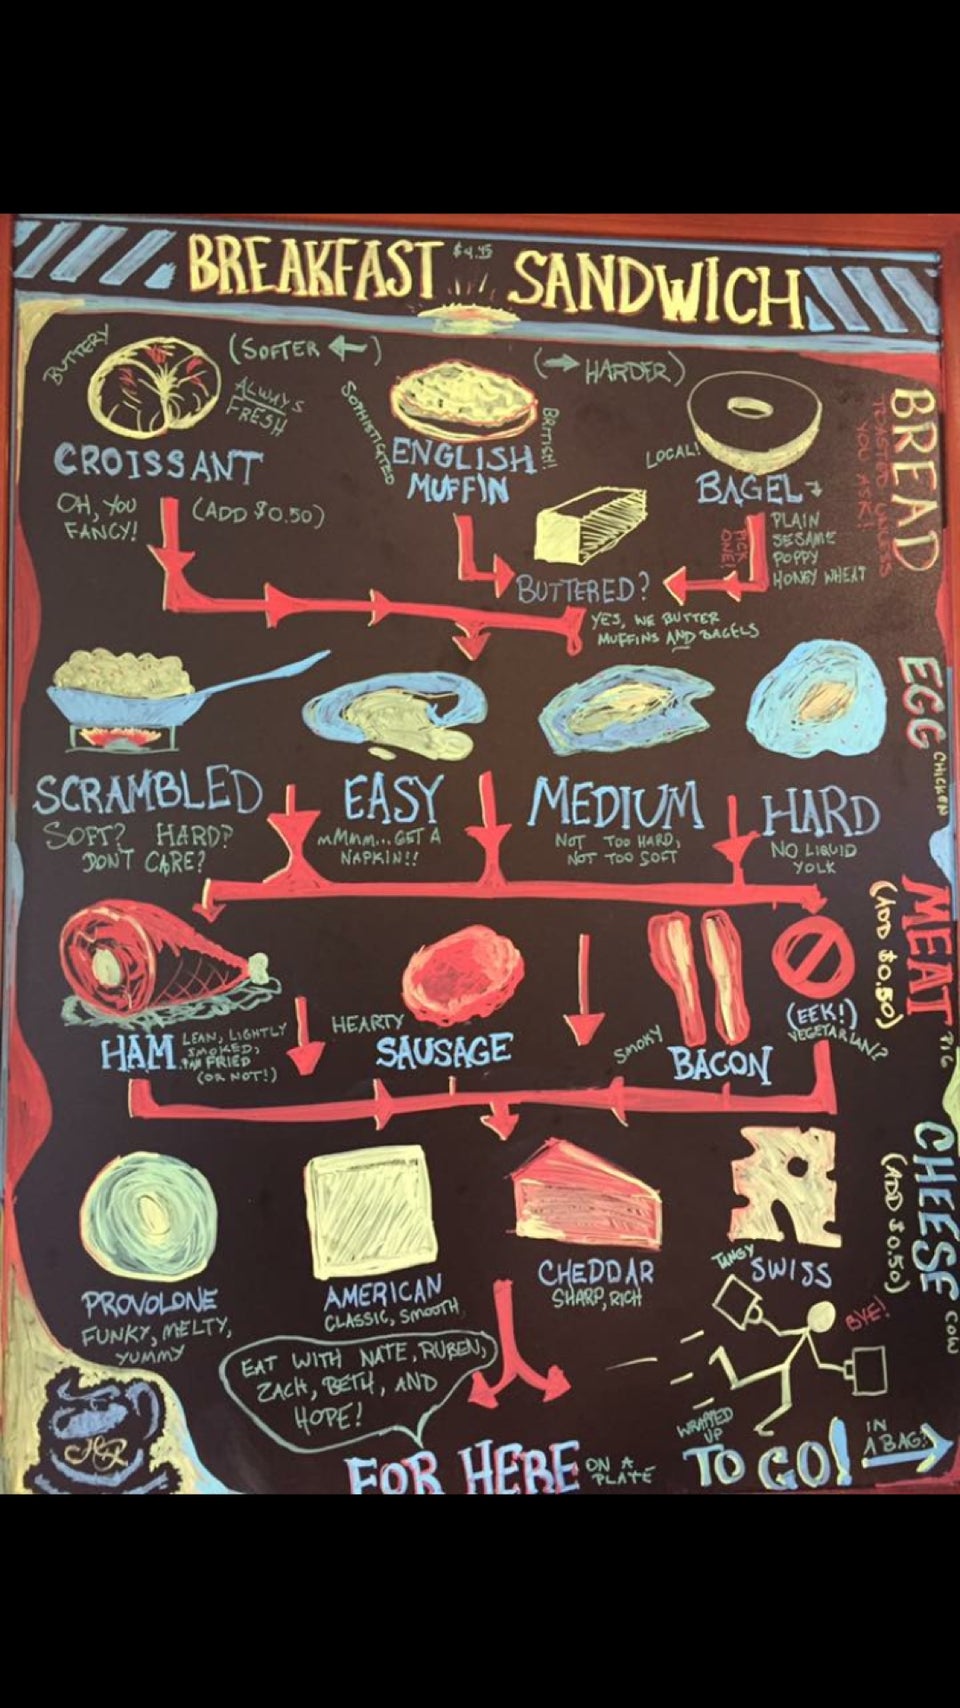 BREAKFAST $4.45 SANDWICH
BUTTERY
(SOFTER ←)
ALWAYS
FRESH
CROISSANT
OH, YOU
FANCY!
(ADD $0.50)
SOPHISTICATED
BRITISH!
ENGLISH
MUFFIN
(→ HARDER)
LOCAL!
BAGEL
PICK
ONE!
PLAIN
SESAME
POPPY
HONEY WHEAT
BUTTERED?
YES, WE BUTTER
MUFFINS AND BAGELS
BREAD
TOASTED UNLESS
YOU ASK!
EGG
CHICKEN
SCRAMBLED
SOFT? HARD?
DON'T CARE?
EASY
MMMM...GET A
NAPKIN!!
MEDIUM
NOT TOO HARD,
NOT TOO SOFT
HARD
NO LIQUID
YOLK
MEAT
PIG
(ADD $0.50)
HAM
LEAN, LIGHTLY
SMOKED,
PAN FRIED
(OR NOT!)
HEARTY
SAUSAGE
SMOKY
BACON
(EEK!)
VEGETARIAN?
CHEESE
COW
(ADD $0.50)
PROVOLONE
FUNKY, MELTY,
YUMMY
AMERICAN
CLASSIC, SMOOTH
CHEDDAR
SHARP, RICH
TANGY
SWISS
BYE!
EAT WITH NATE, RUBEN,
ZACH, BETH, AND
HOPE!
FOR HERE
ON A
PLATE
WRAPPED
UP
TO GO!
IN
A BAG?